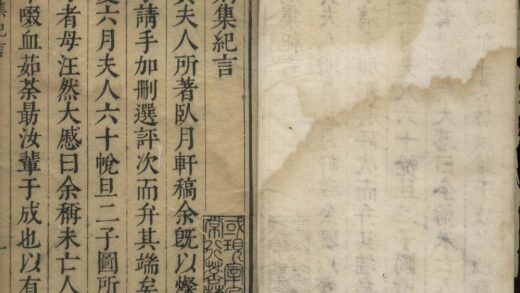 集紀言
夫人所著臥月軒稿余既以燦
請手加删選評次而弁其端矣
六月夫人六十帨旦二子圖所
者母汪然大慼曰余稱未亡人
啜血茹荼最汝輩于成也以有
集紀言
一